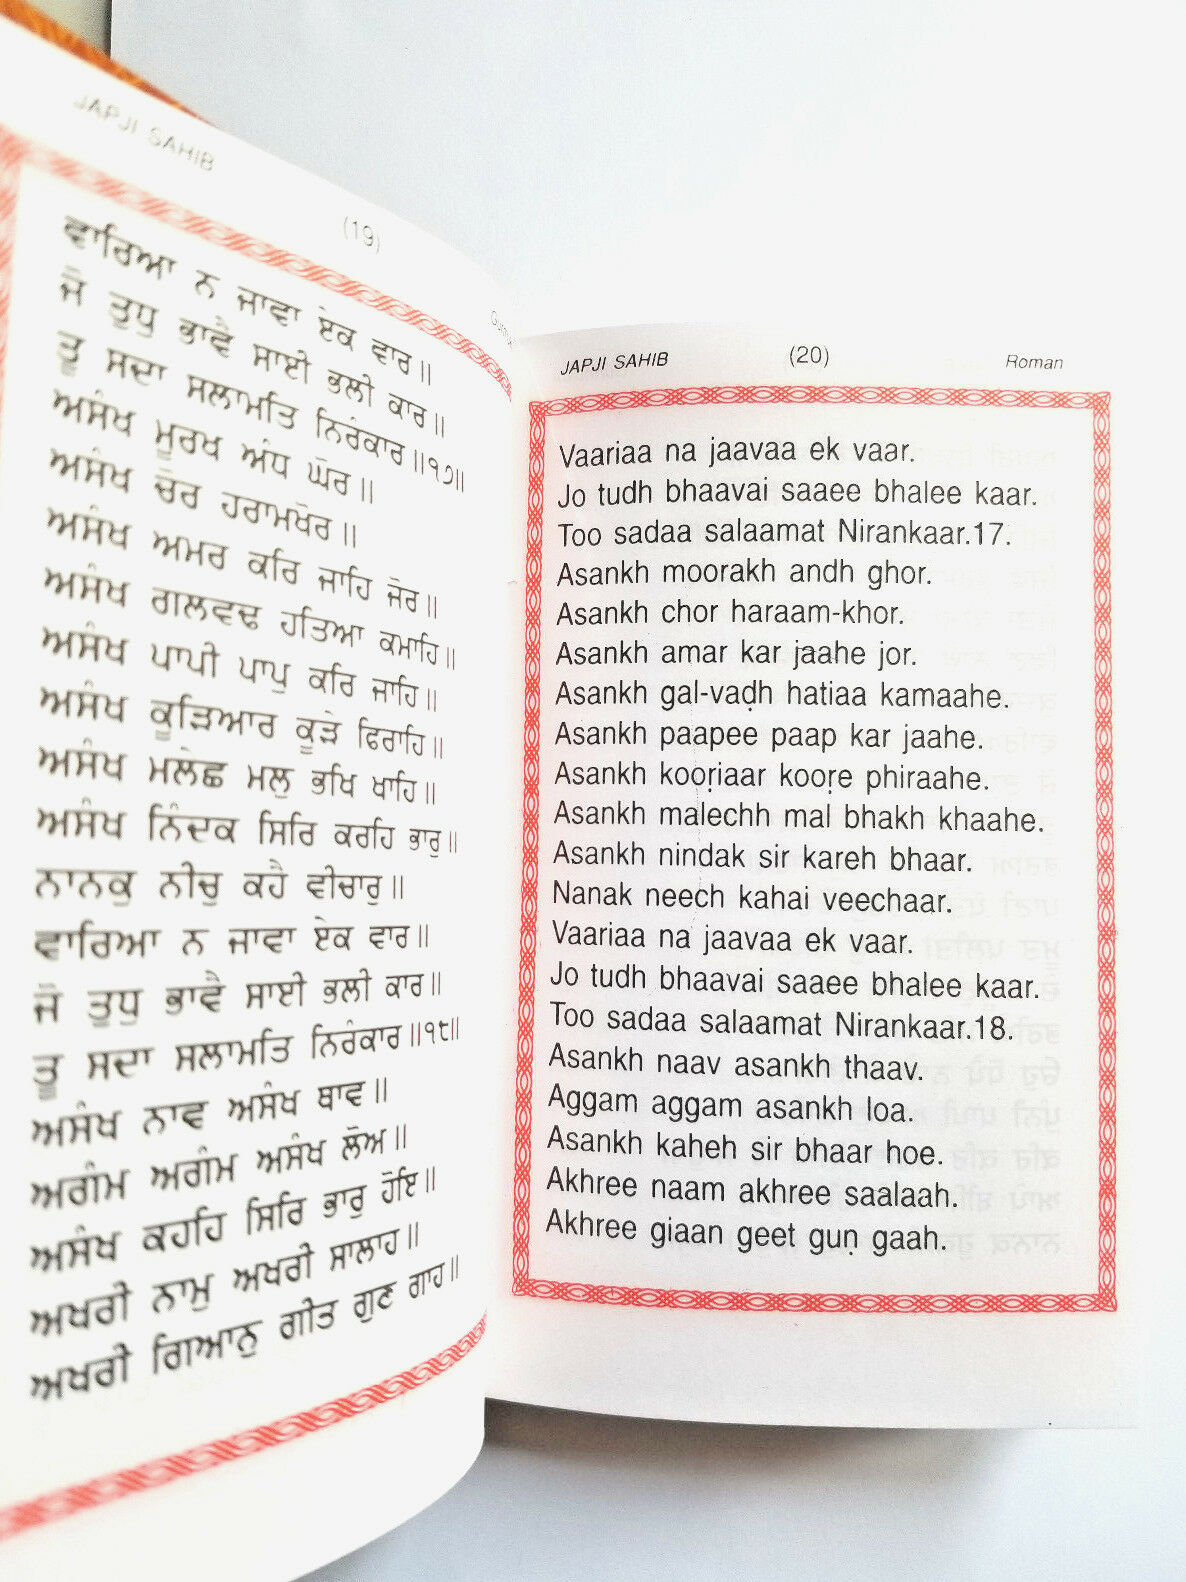 JAPJI SAHIB
(19)
ਵਾਰਿਆ ਨ ਜਾਵਾ ਏਕ ਵਾਰ॥
ਜੋ ਤੁਧੁ ਭਾਵੈ ਸਾਈ ਭਲੀ ਕਾਰ॥
ਤੂ ਸਦਾ ਸਲਾਮਤਿ ਨਿਰੰਕਾਰ॥੧੭॥
ਅਸੰਖ ਮੂਰਖ ਅੰਧ ਘੋਰ॥
ਅਸੰਖ ਚੋਰ ਹਰਾਮਖੋਰ॥
ਅਸੰਖ ਅਮਰ ਕਰਿ ਜਾਹਿ ਜੋਰ॥
ਅਸੰਖ ਗਲਵਢ ਹਤਿਆ ਕਮਾਹਿ॥
ਅਸੰਖ ਪਾਪੀ ਪਾਪੁ ਕਰਿ ਜਾਹਿ॥
ਅਸੰਖ ਕੂੜਿਆਰ ਕੂੜੇ ਫਿਰਾਹਿ॥
ਅਸੰਖ ਮਲੇਛ ਮਲੁ ਭਖਿ ਖਾਹਿ॥
ਅਸੰਖ ਨਿੰਦਕ ਸਿਰਿ ਕਰਹਿ ਭਾਰੁ॥
ਨਾਨਕੁ ਨੀਚੁ ਕਹੈ ਵੀਚਾਰੁ॥
ਵਾਰਿਆ ਨ ਜਾਵਾ ਏਕ ਵਾਰ॥
ਜੋ ਤੁਧੁ ਭਾਵੈ ਸਾਈ ਭਲੀ ਕਾਰ॥
ਤੂ ਸਦਾ ਸਲਾਮਤਿ ਨਿਰੰਕਾਰ॥੧੮॥
ਅਸੰਖ ਨਾਵ ਅਸੰਖ ਥਾਵ॥
ਅਗੰਮ ਅਗੰਮ ਅਸੰਖ ਲੋਅ॥
ਅਸੰਖ ਕਹਹਿ ਸਿਰਿ ਭਾਰੁ ਹੋਇ॥
ਅਖਰੀ ਨਾਮੁ ਅਖਰੀ ਸਾਲਾਹ॥
ਅਖਰੀ ਗਿਆਨੁ ਗੀਤ ਗੁਣ ਗਾਹ॥
JAPJI SAHIB (20) Roman
Vaariaa na jaavaa ek vaar.
Jo tudh bhaavai saaee bhalee kaar.
Too sadaa salaamat Nirankaar.17.
Asankh moorakh andh ghor.
Asankh chor haraam-khor.
Asankh amar kar jaahe jor.
Asankh gal-vaḍh hatiaa kamaahe.
Asankh paapee paap kar jaahe.
Asankh kooṛiaar kooṛe phiraahe.
Asankh malechh mal bhakh khaahe.
Asankh nindak sir kareh bhaar.
Nanak neech kahai veechaar.
Vaariaa na jaavaa ek vaar.
Jo tudh bhaavai saaee bhalee kaar.
Too sadaa salaamat Nirankaar.18.
Asankh naav asankh thaav.
Aggam aggam asankh loa.
Asankh kaheh sir bhaar hoe.
Akhree naam akhree saalaah.
Akhree giaan geet guṇ gaah.